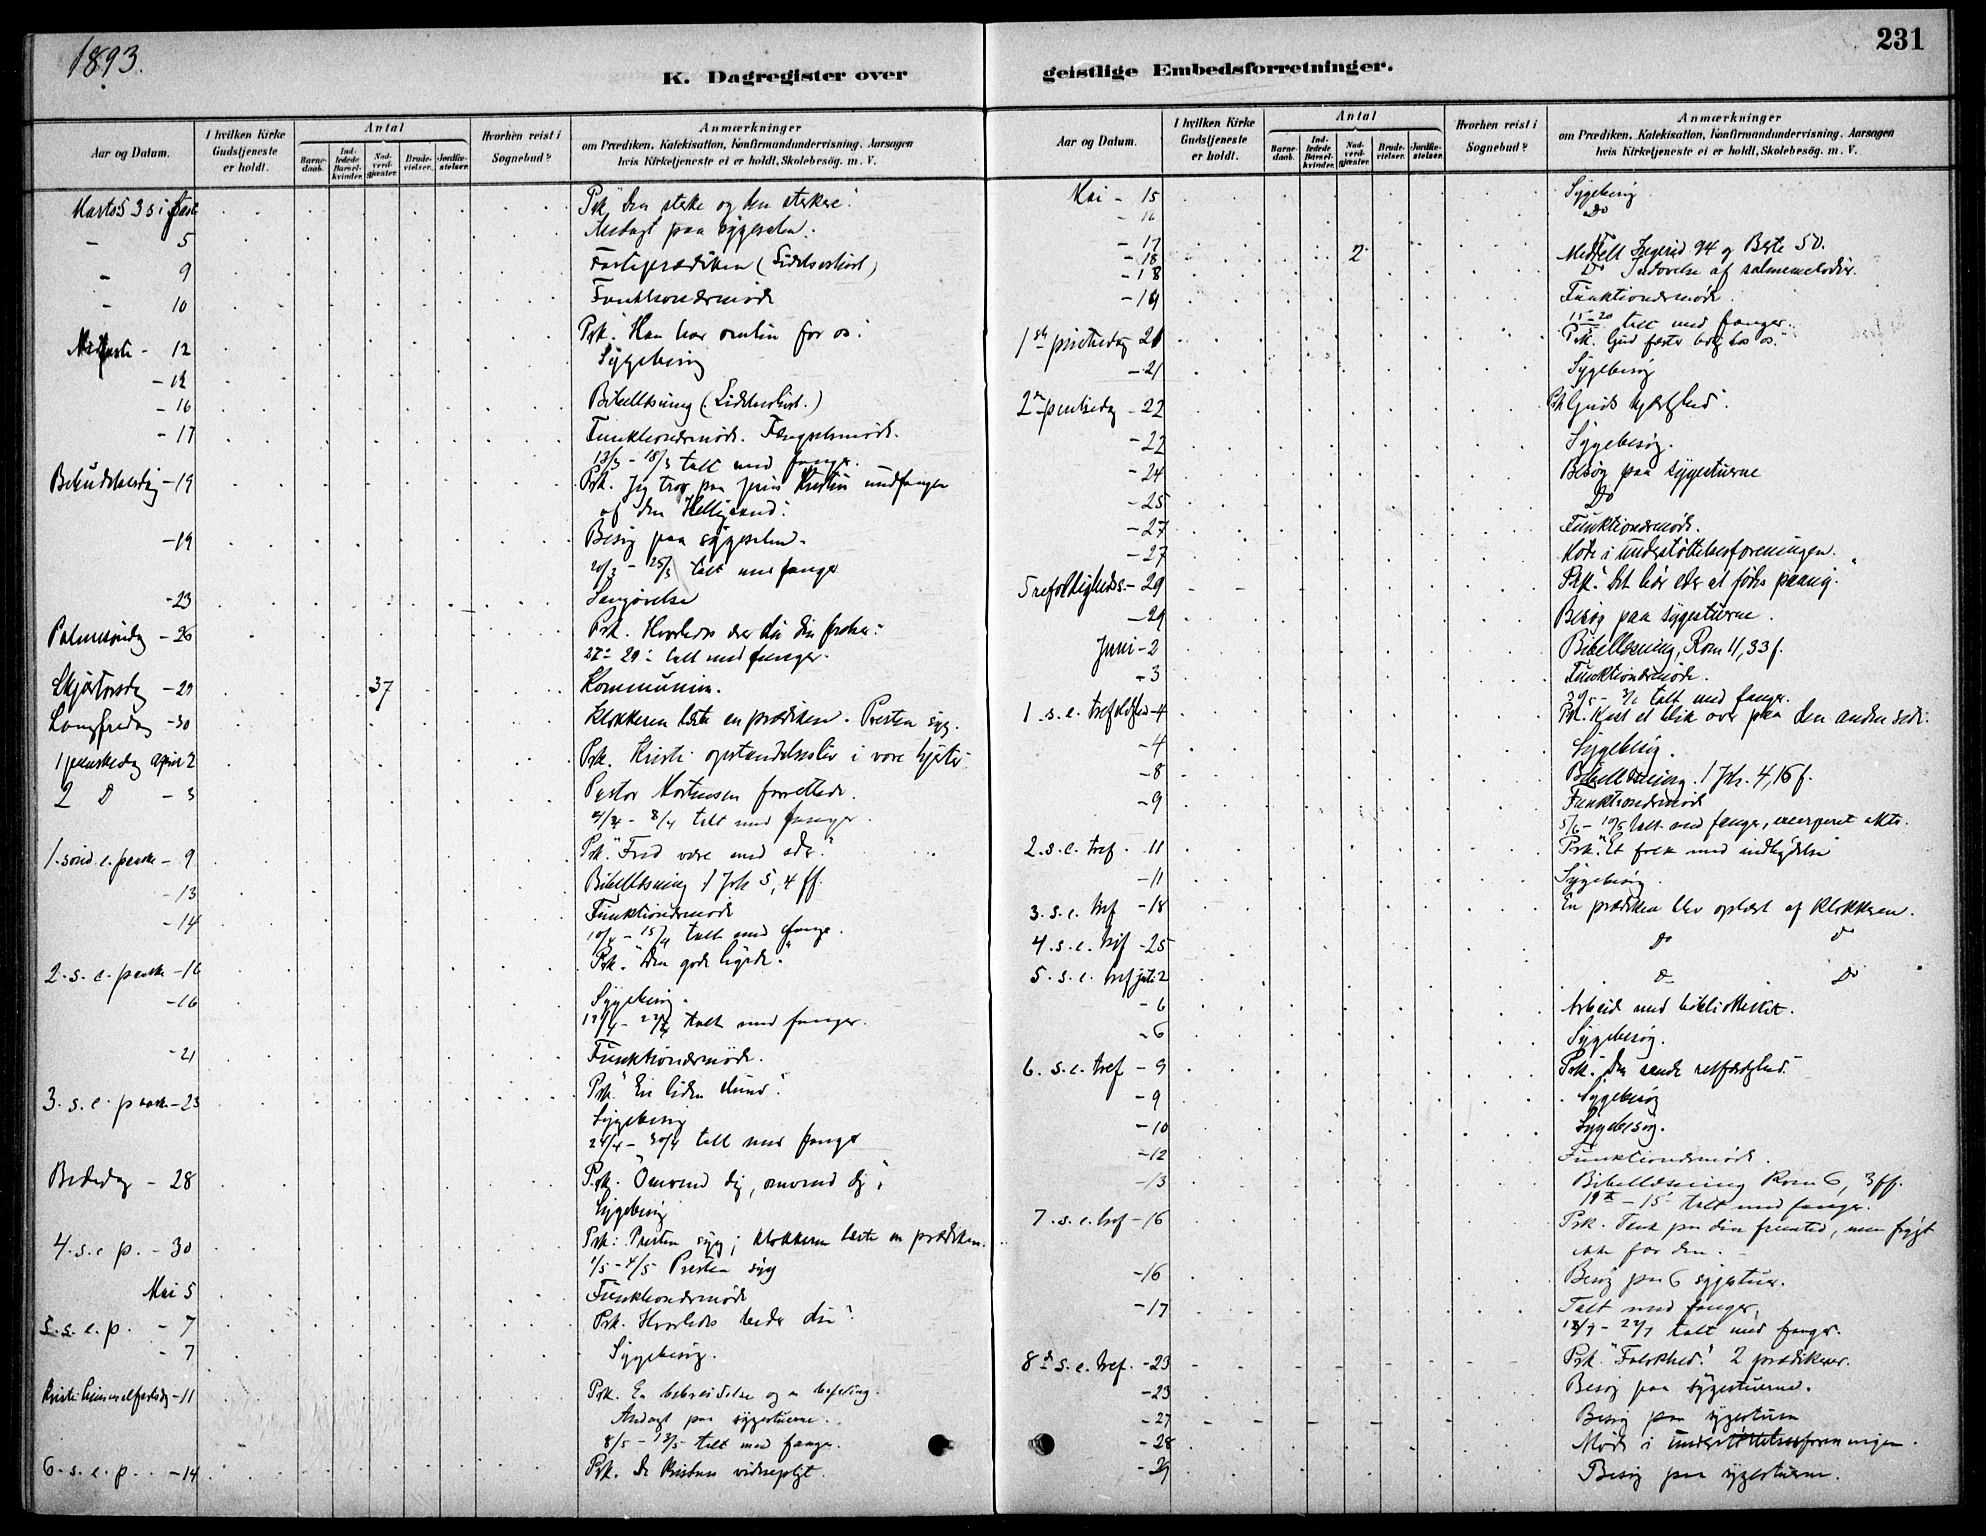 1893.
231
K. Dagregister over geistlige Embedsforretninger.
Aar og Datum.
I hvilken Kirke Gudstjeneste er holdt.
Antal
Barnedaab.
Indledede Barselkvinder.
Nadverdgjæster.
Brudevielser.
Jordfæstelser.
Hvorhen reist i Sognebud?
Anmærkninger
om Prædiken, Katekisation, Konfirmandundervisning. Aarsagen
hvis Kirketjeneste ei er holdt, Skolebesög. m. V.
Marts 5 3 s i faste Prk. "Den sterke og den sterkere".
- 5 Andagt paa sygesalen.
- 9 Fasteprædiken (Lidelseshist)
- 10 Funktionærmøde
Midfaste - 12 Prk. "Han har omsun for os".
- 12 Sygebesøg
- 16 Bibellæsning (Lidelseshist.)
- 17 Funktionærmøde. Fængselsmøde.
13/3 - 18/3 talt med fanger.
Bebudelsesdag - 19 Prk. Jeg tror paa Jesus Kristus undfangen
af den Helligaand.
- 19 Besøg paa sygesalen.
20/3 - 25/3 talt med fanger
- 23 Sangøvelse
Palmesøndag - 26 Prk. Hvorledes er du din frelser.
27 - 29 talt med fanger.
Skjærtorsdag - 29 37 Kommunion.
Langfredag - 30 Klokkeren læste en prædiken. Presten syg.
1 paaskedag April 2 Prk. Kristi opstandelsesliv i vore hjerter
2 Do - 3 Pastor Mortensen forrettede.
4/4 - 8/4 talt med fanger.
1. sønd. e. paaske - 9 Prk. "Fred være med eder."
- 13 Bibellæsning 1 Joh 5, 4 ff.
- 14 Funktionærmøde
10/4 - 15/4 talt med fanger.
2. s. e. paaske - 16 Prk. "Den gode hyrde."
- 16 Sygebesøg.
17/4 - 22/4 talt med fanger.
- 21 Funktionærmøde.
3. s. e. paaske - 23 Prk. "En liden stund".
Sygebesøg
24/4 - 30/4 talt med fanger
Bededag - 28 Prk. "Omvend dig, omvend dig".
Sygebesøg
4. s. e p. - 30 Prk: Presten syg; klokkeren læste en prædiken.
1/5 - 4/5 Presten syg
Mai 5 Funktionærmøde
5. s. e. p. - 7 Prk. Hvorledes beder du?
- 7 Sygebesøg.
Kristi himmelfartsdag - 11 Prk. En bebreidelse og en befaling.
Andagt paa sygestuerne.
8/5 - 13/5 talt med fanger.
6. s. e. p. - 14 Prk. De kristnes vidnepligt.
Aar og Datum.
I hvilken Kirke Gudstjeneste er holdt.
Antal
Barnedaab.
Indledede Barselkvinder.
Nadverdgjæster.
Brudevielser.
Jordfæstelser.
Hvorhen reist i Sognebud?
Anmærkninger
om Prædiken, Katekisation, Konfirmandundervisning. Aarsagen
hvis Kirketjeneste ei er holdt, Skolebesög. m. V.
Mai - 15 Sygebesøg
- 16 Do
- 17 Do
- 18 2 Meddelt 94 og 50.
- 18 Indøvelse af salmemelodier.
- 19 Funktionærmøde.
15-20 talt med fanger.
1ste pinsedag 21 Prk. Gud fæster bolig hos os.
- 21 Sygebesøg
2den pinsedag - 22 Prk Guds kjærlighed.
- 22 Sygebesøg.
- 24 Besøg paa sygestuerne
- 25 Do
- 27 Funktionærmøde.
- 27 Møde i understøttelsesforeningen.
Trefoldigheds. - 29 Prk. "Det bør eder at fødes paany".
- 29 Besøg paa sygestuerne.
Juni - 2 Bibellæsning, Rom 11, 33 f.
- 3 Funktionærmøde.
talt med fanger.
1. s. e. trefoldighed - 4 Prk. Kast et blik over paa den anden side.
- 4 Sygebesøg.
- 8 Bibellæsning. 1 Joh. 4, 16 f.
- 9 Funktionærmøde
5/6 - 10/6 talt med fanger, excerperet akter.
2. s. e. tref. 11 Prk. "Et folk med indbydelse
- 11 Sygebesøg.
3. s. e. tref - 18 En prædiken blev oplæst af klokkeren.
4. s. e. tref - 25 Do Do
5. s. e. tref juli 2 Do Do
- 6 Arbeid med bibliotheket.
- 6 Sygebesøg.
6. s. e. tref - 9 Prk. "Den sande retfærdighed."
- 9 Sygebesøg
- 10 Sygebesøg.
- 12 Funktionærmøde.
- 13 Bibellæsning Rom 6, 3 ff.
- 15 talt med fanger.
7. s. e. tref - 16 Prk. Tenk paa din fremtid, men frygt
ikke for den.
- 16 Besøg paa 6 sygestuer.
- 17 Talt med fanger,
18/7 - 22/7 talt med fanger.
8de s. e. tref. - 23 Prk. "Falskhed." 2 prædikener.
- 23 Besøg paa sygestuerne.
- 27 Besøg paa sygestuen
- 28 Møde i understøttelsesforeningen.
- 29 Besøg paa sygestuerne.